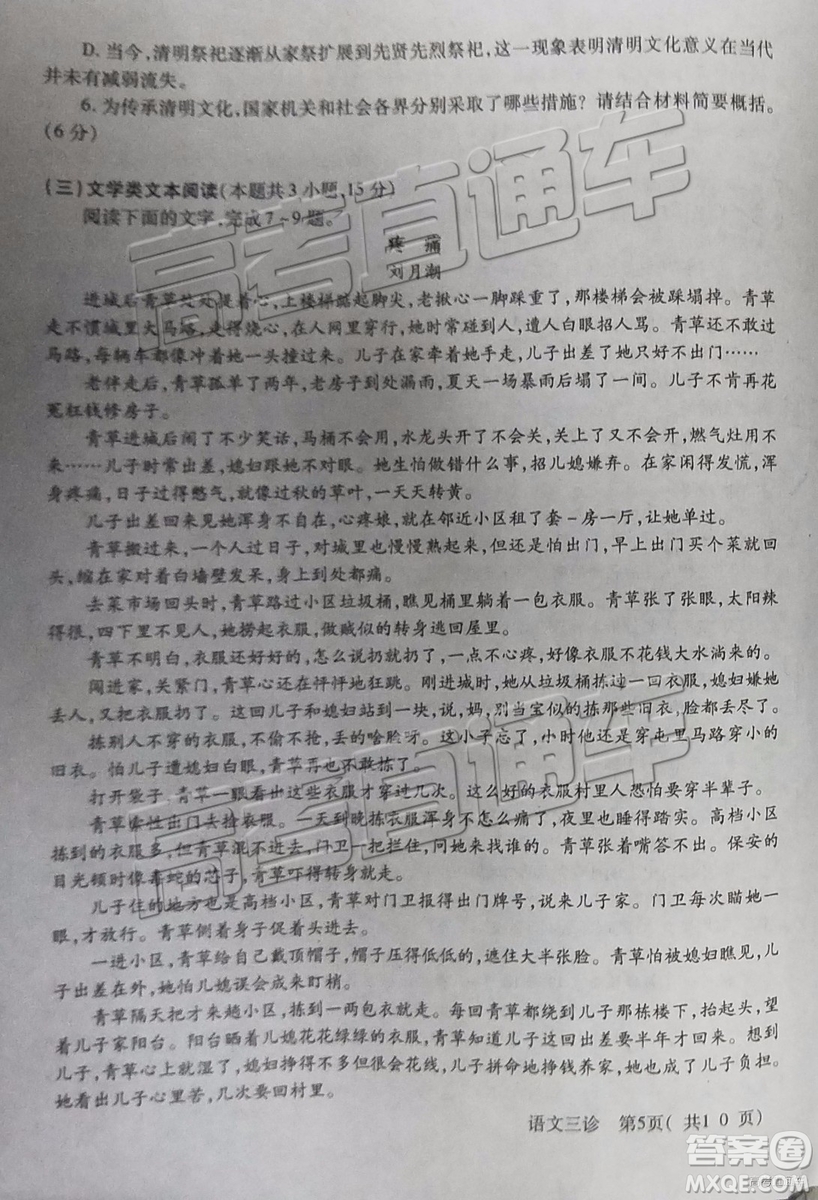 D. 当今,清明祭祀逐渐从家祭扩展到先贤先烈祭祀,这一现象表明清明文化意义在当代
并未有减弱流失。
6. 为传承清明文化,国家机关和社会各界分别采取了哪些措施？请结合材料简要概括。
(6分)
(三)文学类文本阅读(本题共3小题,15分)
阅读下面的文字,完成7~9题。
疼 痛
刘月潮
进城后青草处处提着心,上楼梯踮起脚尖,老揪心一脚踩重了,那楼梯会被踩塌掉。青草
走不惯城里大马路,走得烧心,在人网里穿行,她时常碰到人,遭人白眼招人骂。青草最怕过
马路,每辆车都像冲着她一头撞过来。儿子在家牵着她手走,儿子出差了她只好不出门……
老伴走后,青草孤单了两年,老家房子到处漏雨,夏天一场暴雨后塌了一间。儿子不肯再花
冤枉钱修房子。
青草进城后闹了不少笑话,马桶不会冲,水龙头开了不会关,关上了不会开,燃气灶用不
来……儿子时常出差,媳妇跟她不对眼。她生怕做错什么事,招儿媳嫌弃。在家闲得发慌,浑
身疼痛,日子过得憋气,就像过秋的草叶,一天天转黄。
儿子出差回来见她浑身不自在,心疼娘,就在邻近小区租了套一房一厅,让她单过。
青草搬过来,一个人过日子,对城里也慢慢熟起来,但还是怕出门,早上出门买个菜就回
头,缩在家对着白墙壁发呆,身上到处都痛。
去菜市场回头时,青草路过小区垃圾桶,瞧见桶里躺着一包衣服。青草张了张眼,太阳辣
得很,四下里不见人,她捞起衣服,做贼似的转身逃回屋里。
青草不明白,衣服还好好的,怎么说扔就扔了,一点不心疼,好像衣服不花钱大水淌来的。
闯进家,关紧门,青草的心还在怦怦地狂跳。刚进城时,她从垃圾桶拣过一回衣服,媳妇嫌她
丢人,又把衣服扔了。这回儿子和媳妇站到一块,说,妈,别当宝似的拣那些旧衣,脸都丢尽了。
拣别人不穿的衣服,不偷不抢,丢的啥脸呀。这小子忘了,小时他还是穿屯里马路穿小的
旧衣。怕儿子遭媳妇白眼,青草再也不敢拣了。
打开袋子,青草一眼看出这些衣服才穿过几次。这么好的衣服村里人恐怕要穿半辈子。
青草索性出门去捡衣服。一天到晚拣衣服浑身不怎么痛了,夜里也睡得踏实。高档小区
拣到的衣服多,但青草混不进去。门卫一把拦住,问她来找谁的。青草张着嘴答不出。保安的
目光顿时像毒蛇的芯子,青草吓得转身就走。
儿子住的地方也是高档小区,青草对门卫报得出门牌号,说来儿子家。门卫每次瞄她一
眼,才放行。青草侧着身子促着头进去。
一进小区,青草给自己戴顶帽子,帽子压得低低的,遮住大半张脸。青草怕被媳妇瞧见,儿
子出差在外,她也怕儿媳误会成来盯梢。
青草隔天把才来趟小区,拣到一两包衣就走。每回青草都绕到儿子那栋楼下,抬起头,望
着儿子家阳台。阳台晒着儿媳花花绿绿的衣服,青草知道儿子这回出差要半年才回来。想到
儿子,青草心上就湿了,媳妇挣得不多但很会花线,儿子拼命地挣钱养家,她也成了儿子负担。
她看出儿子心里苦,几次要回村里。
语文三诊 第5页( 共1 0 页)
高考直通车
高考直通车
高考直通车
答案圈
MXQE.COM